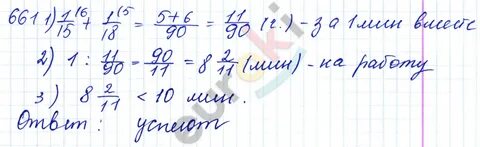 661 1) 1/15 ^6 + 1/18 ^5 = (5+6)/90 = 11/90 (г.) - за 1 мин вместе
2) 1 : 11/90 = 90/11 = 8 2/11 (мин) - на работу
3) 8 2/11 < 10 мин.
Ответ: успеют